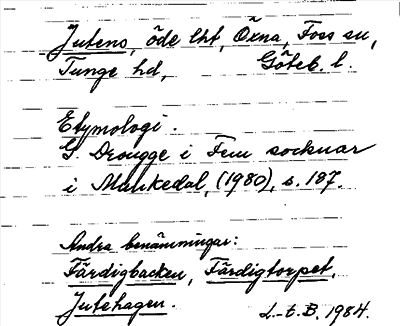 Jutens, öde lht, Öxna, Foss sn,
Tunge hd, Göteb. l.
Etymologi.
G. Drougge i Fem socknar
i Munkedal, (1980), s. 187.
Andra benämningar:
Färdigbacken, Färdigtorpet,
Jutehagen. L-t.B. 1984.